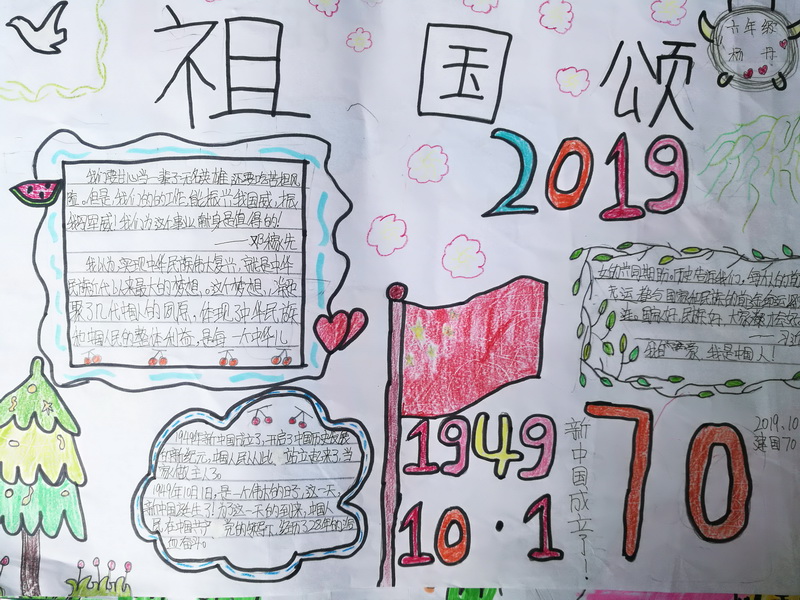 祖国颂
六年级
杨丹
2019
我们要甘心当一辈子无名英雄,还要吃苦担风
险,但是我们的工作能振兴我国威,振
我军军威!我们为这事业献身是值得的!
——邓稼先
我以为实现中华民族伟大复兴,就是中华
民族近代以来最大的梦想。这个梦想,凝
聚了几代中国人的夙愿,体现了中华民族
和中国人民的整体利益,是每一个中华儿
我的
我是中国人!
1949
10·1
新中国成立了!
70
2019.10
建国70
1949年新中国成立了,开启了中国历史发展
的新纪元,中国人民从此站立起来了,当
家做主人了。
1949年10月1日,是一个伟大的日子,这一天,
新中国诞生了!为这一天的到来,中国人
民在中国共产党的领导下,经历了28年的浴
血奋斗。